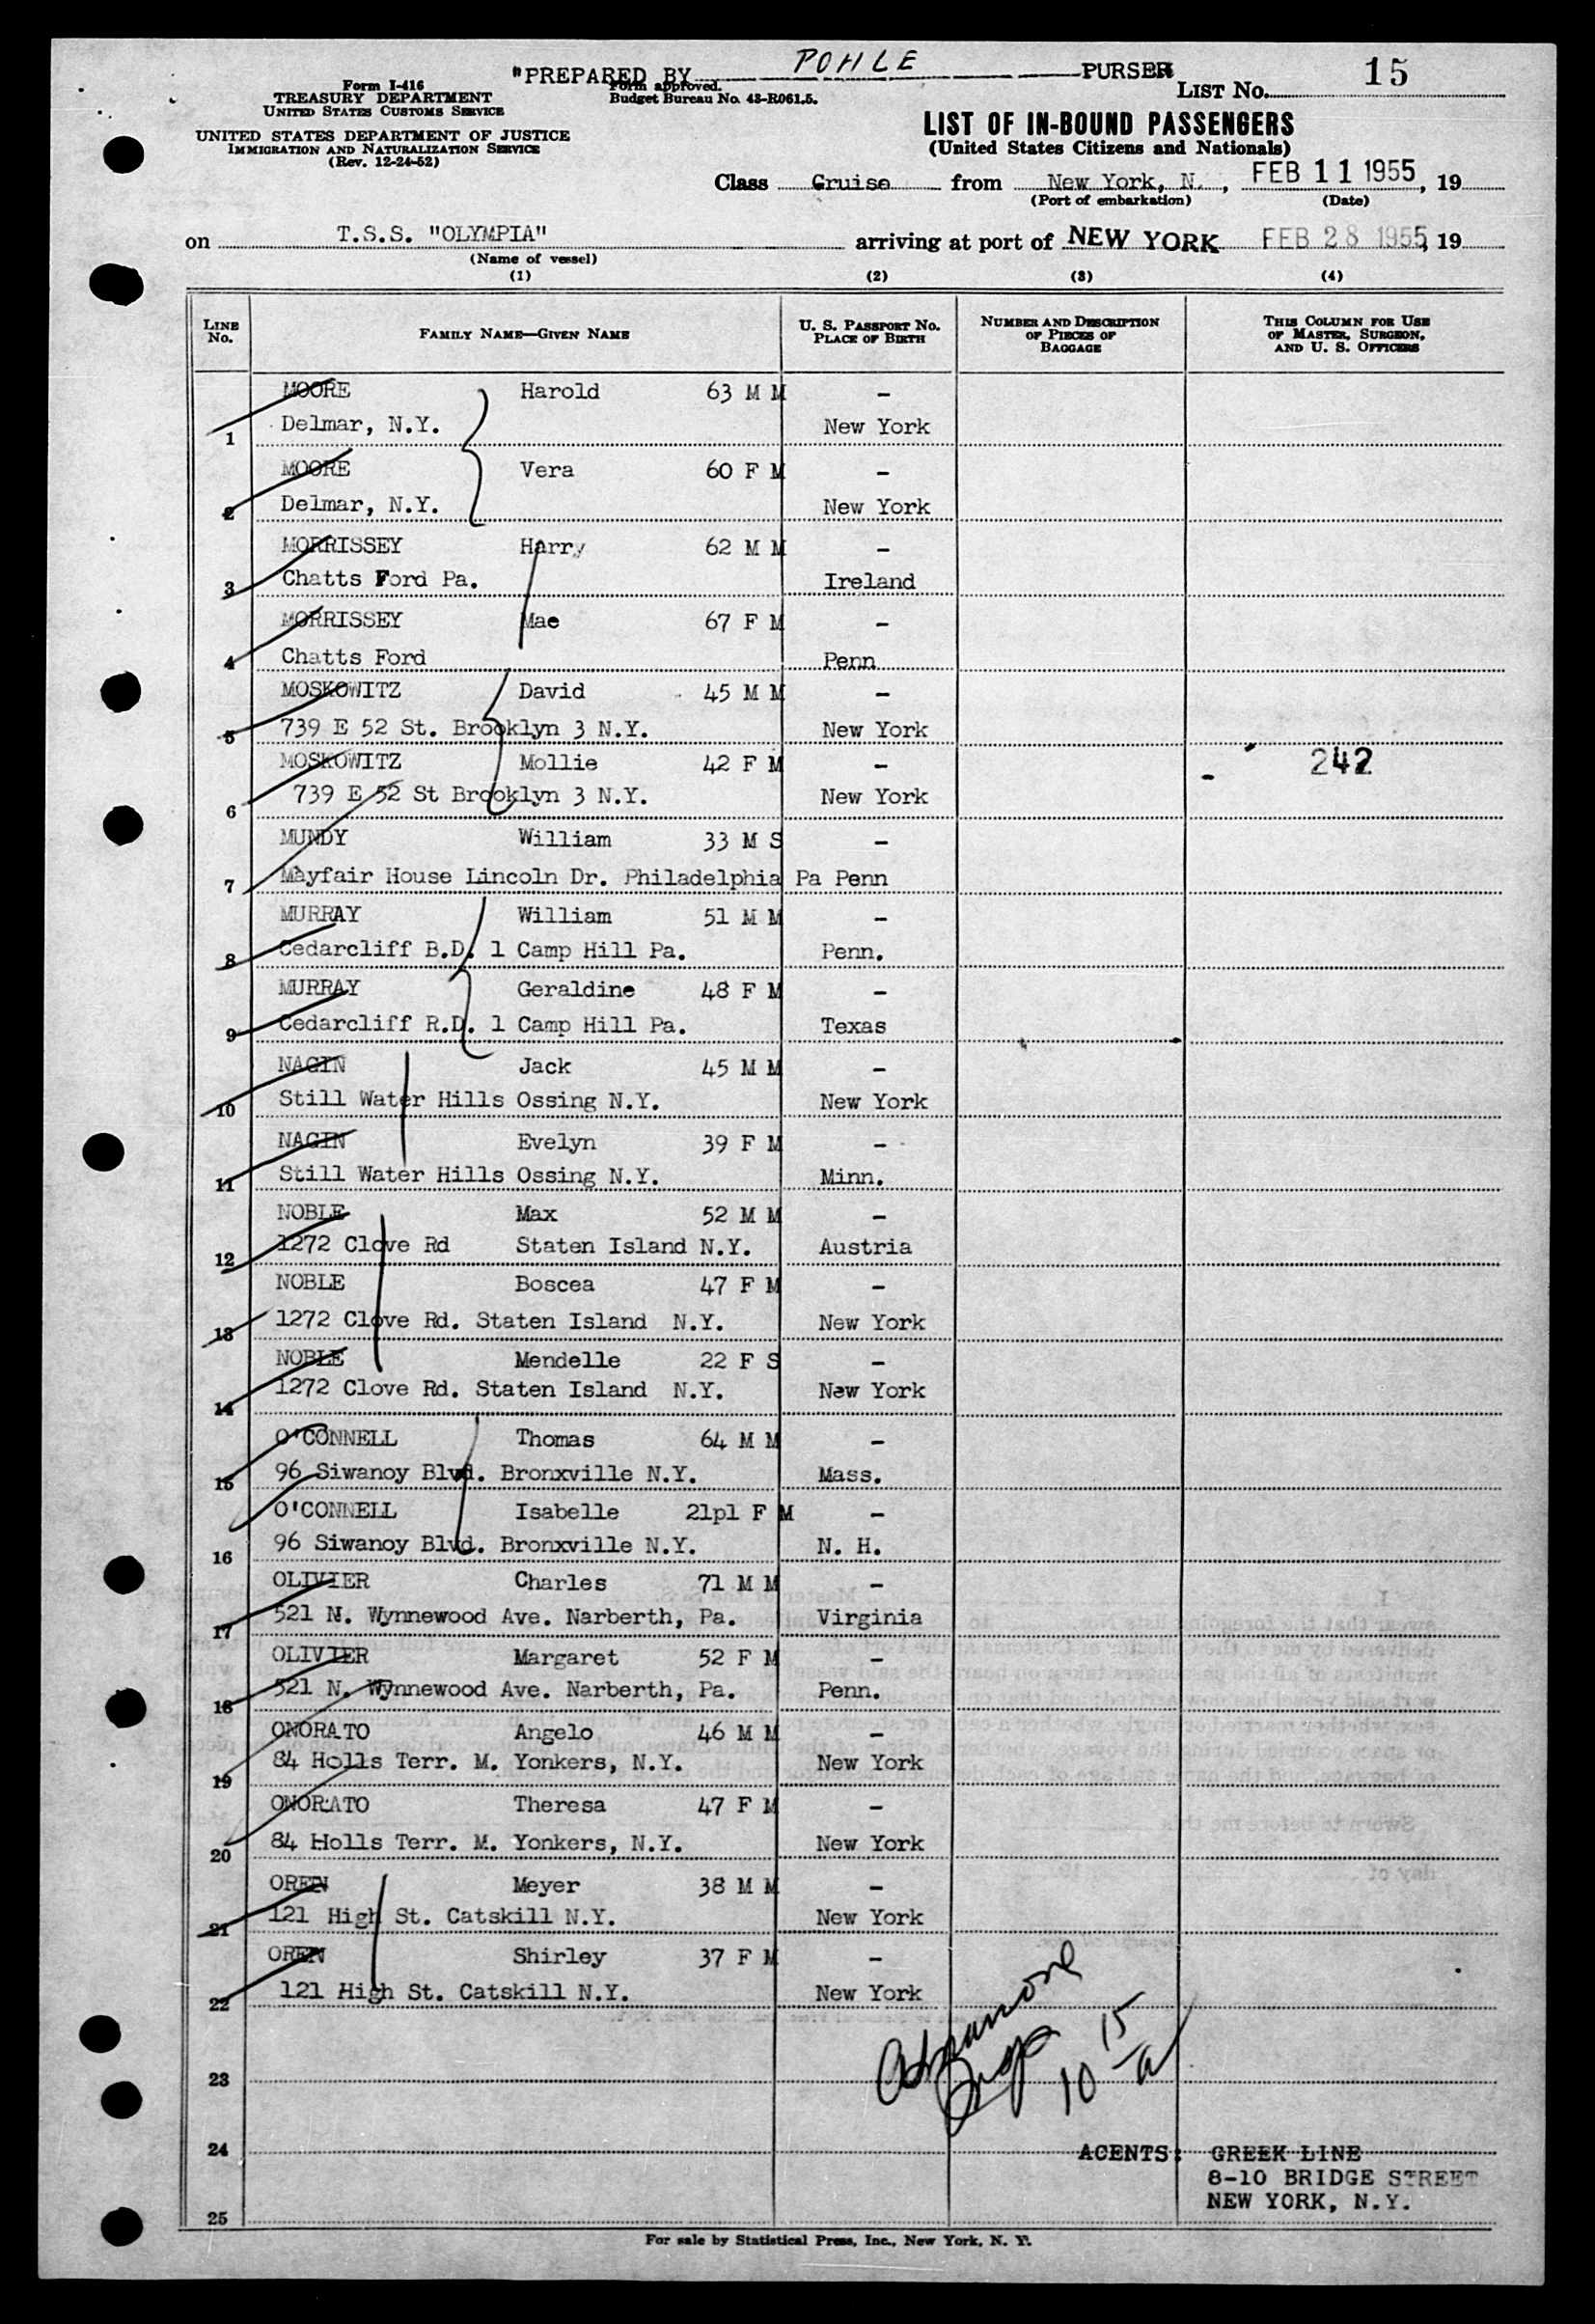 "PREPARED BY POHLE PURSER
Form I-416
TREASURY DEPARTMENT
UNITED STATES CUSTOMS SERVICE
UNITED STATES DEPARTMENT OF JUSTICE
IMMIGRATION AND NATURALIZATION SERVICE
(Rev. 12-24-52)
Form approved.
Budget Bureau No. 43-R061.5.
LIST NO. 15
LIST OF IN-BOUND PASSENGERS
(United States Citizens and Nationals)
Class Cruise from New York, N. , FEB 11 1955, 19
(Port of embarkation) (Date)
on T.S.S. "OLYMPIA" arriving at port of NEW YORK FEB 28 1955, 19
(Name of vessel)
(1) (2) (3) (4)
LINE NO. FAMILY NAME—GIVEN NAME U. S. PASSPORT NO. PLACE OF BIRTH NUMBER AND DESCRIPTION OF PIECES OF BAGGAGE THIS COLUMN FOR USE OF MASTER, SURGEON, AND U. S. OFFICERS
MOORE Harold 63 M M -
1 Delmar, N.Y. New York
MOORE Vera 60 F M -
2 Delmar, N.Y. New York
MORRISSEY Harry 62 M M -
3 Chatts Ford Pa. Ireland
MORRISSEY Mae 67 F M -
4 Chatts Ford Penn
MOSKOWITZ David 45 M M -
5 739 E 52 St. Brooklyn 3 N.Y. New York
MOSKOWITZ Mollie 42 F M - 242
6 739 E 52 St Brooklyn 3 N.Y. New York
MUNDY William 33 M S -
7 Mayfair House Lincoln Dr. Philadelphia Pa Penn
MURRAY William 51 M M -
8 Cedarcliff B.D. 1 Camp Hill Pa. Penn.
MURRAY Geraldine 48 F M -
9 Cedarcliff R.D. 1 Camp Hill Pa. Texas
NAGIN Jack 45 M M -
10 Still Water Hills Ossing N.Y. New York
NAGIN Evelyn 39 F M -
11 Still Water Hills Ossing N.Y. Minn.
NOBLE Max 52 M M -
12 1272 Clove Rd Staten Island N.Y. Austria
NOBLE Boscea 47 F M -
13 1272 Clove Rd. Staten Island N.Y. New York
NOBLE Mendelle 22 F S -
14 1272 Clove Rd. Staten Island N.Y. New York
O'CONNELL Thomas 64 M M -
15 96 Siwanoy Blvd. Bronxville N.Y. Mass.
O'CONNELL Isabelle 21pl F M -
16 96 Siwanoy Blvd. Bronxville N.Y. N. H.
OLIVIER Charles 71 M M -
17 521 N. Wynnewood Ave. Narberth, Pa. Virginia
OLIVIER Margaret 52 F M -
18 521 N. Wynnewood Ave. Narberth, Pa. Penn.
ONORATO Angelo 46 M M -
19 84 Holls Terr. M. Yonkers, N.Y. New York
ONORATO Theresa 47 F M -
20 84 Holls Terr. M. Yonkers, N.Y. New York
OREN Meyer 38 M M -
21 121 High St. Catskill N.Y. New York
OREN Shirley 37 F M -
22 121 High St. Catskill N.Y. New York
10 15
23
24 AGENTS: GREEK LINE
8-10 BRIDGE STREET
NEW YORK, N.Y.
25
For sale by Statistical Press, Inc., New York, N. Y.